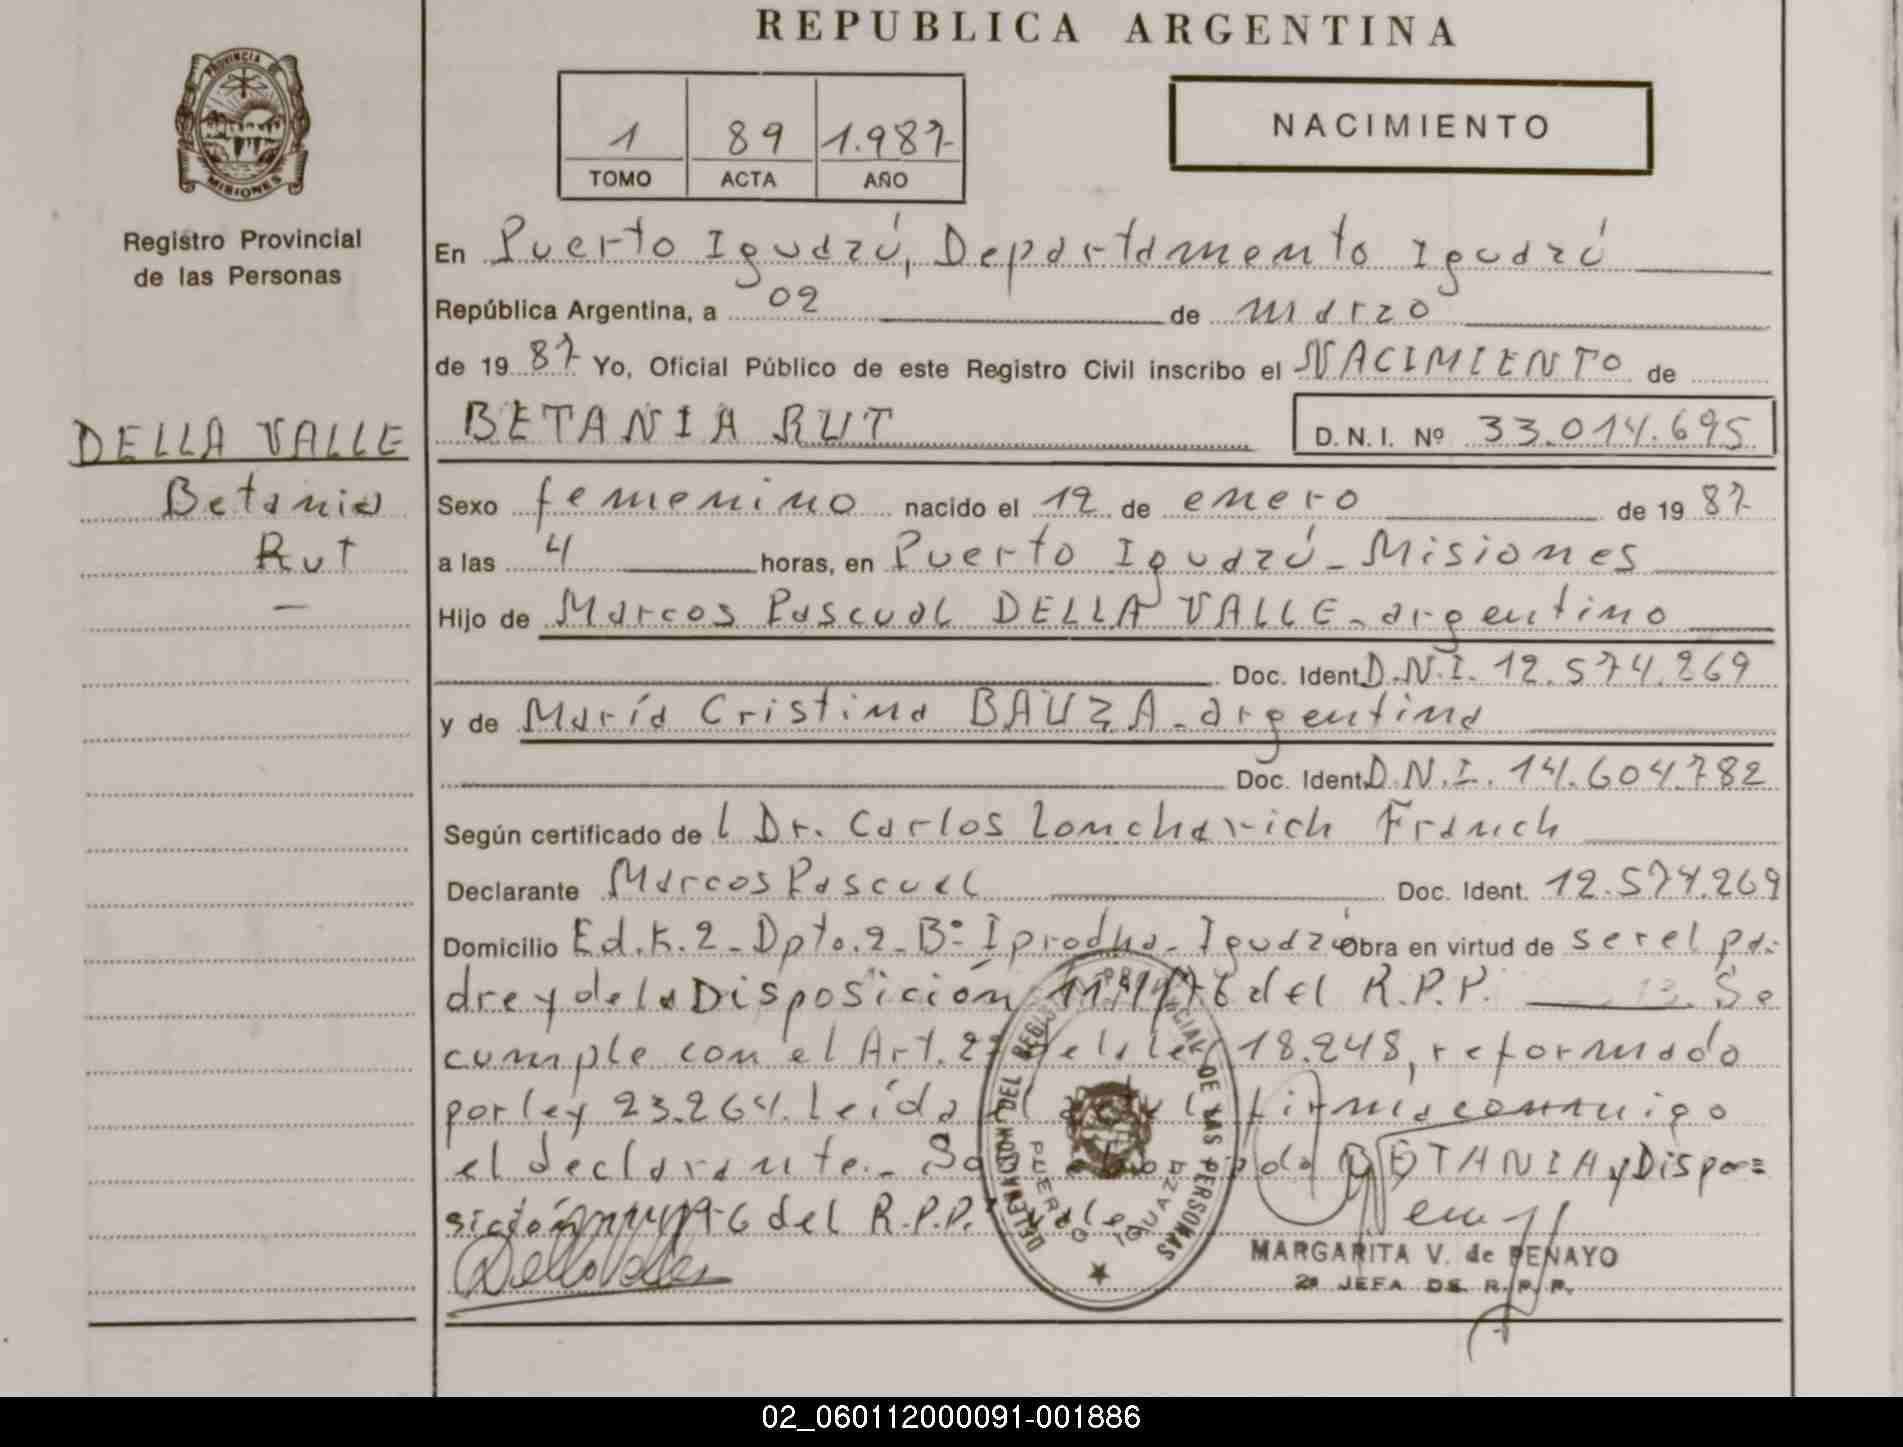 REPUBLICA ARGENTINA
PROVINCIA DE
MISIONES
Registro Provincial
de las Personas
1 89 1.987-
TOMO ACTA AÑO
NACIMIENTO
En Puerto Iguazú, Departamento Iguazú
República Argentina, a 02 de marzo
de 19 87- Yo, Oficial Público de este Registro Civil inscribo el NACIMIENTO de
BETANIA RUT D. N. I. Nº 33.014.695
DELLA VALLE
Betania
Rut
—
Sexo femenino nacido el 12 de enero de 19 87-
a las 4 horas, en Puerto Iguazú - Misiones
Hijo de Marcos Pascual DELLA VALLE - argentino
Doc. Ident. D.N.I. 12.574.269
y de María Cristina BAUZA - argentina
Doc. Ident. D.N.I. 14.604.782
Según certificado de l Dr. Carlos Zoncharich Franch
Declarante Marcos Pascual Doc. Ident. 12.574.269
Domicilio Ed. K. 2 - Dpto. 2 - Bº Iprodha - Iguazú Obra en virtud de ser el pa-
dre y de la Disposición del R.P.P. 13. Se
cumple con el Art. 2º de la ley 18.248, reformado
por ley 23.264. Leída el acta la firma conmigo
el declarante.- BETANIA y Dispo=
sición del R.P.P. Vale
Della Valle
DELEGACION DEL REGISTRO PROVINCIAL DE LAS PERSONAS
PUERTO IGUAZU
MARGARITA V. de PENAYO
2ª JEFA DE R. P. P.
02_060112000091-001886